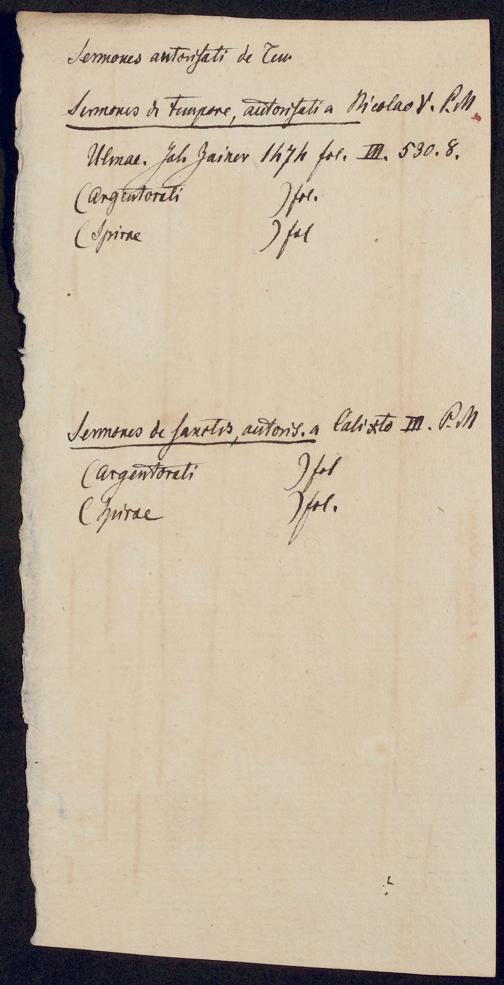 Sermones autorisati de Tem
Sermones de tempore, autorisati a Nicolao V. P. M.
Ulmae. Joh Zainer 1474 fol. III. 530. 8.
(Argentorati )fol.
(Spirae )fol
Sermones de sanctis, autoris. a Calixto III. P. M
(Argentorati )fol
(Spirae )fol.